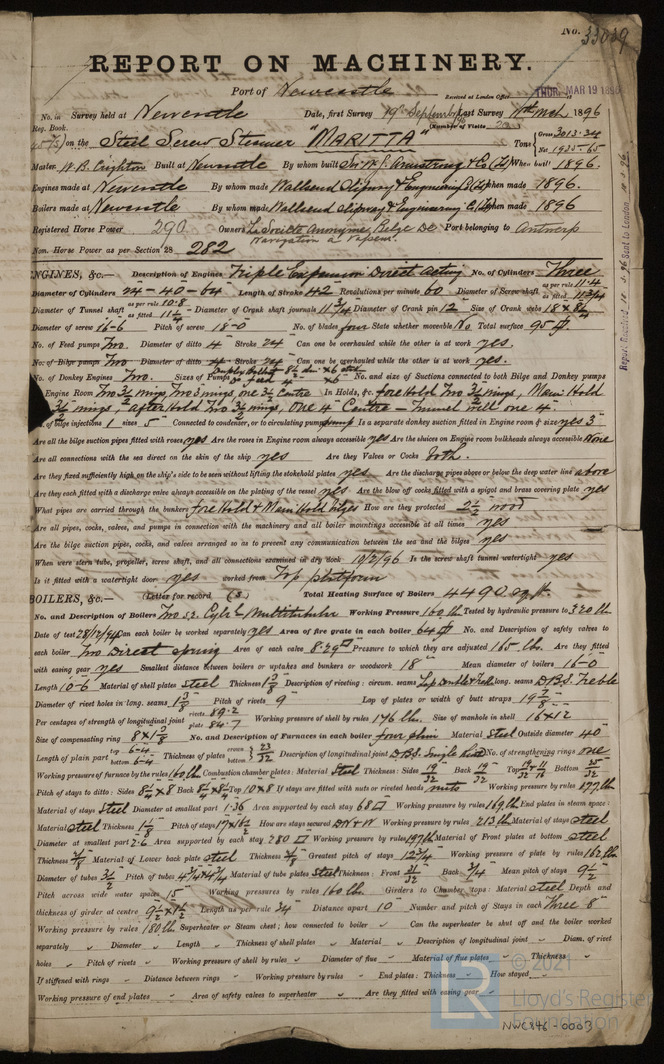 No. 33039
REPORT ON MACHINERY.
Port of Newcastle
Received at London Office THUR. MAR 19 1896
No. in Survey held at Newcastle Date, first Survey 19th September Last Survey 11th Mch 1896
Reg. Book. (Number of Visits
on the Steel Screw Steamer "MARITTA" Tons Gross 3013.24
Net 1925.65
Master W. B. Crighton Built at Newcastle By whom built Sir W. G. Armstrong & Co (Ld) When built 1896.
Engines made at Newcastle By whom made Wallsend Slipway & Engineering Co (Ld) when made 1896.
Boilers made at Newcastle By whom made Wallsend Slipway & Engineering Co (Ld) when made 1896
Registered Horse Power 290 Owners La Société Anonyme Belge de Navigation a Vapeur. Port belonging to Antwerp
Nom. Horse Power as per Section 28 282
ENGINES, &c.— Description of Engines Triple Expansion Direct Acting No. of Cylinders Three
Diameter of Cylinders 24 - 40 - 64 Length of Stroke 42 Revolutions per minute 60 Diameter of Screw shaft as per rule 11.4 as fitted 11 3/4
Diameter of Tunnel shaft as per rule 10.8 as fitted Diameter of Crank shaft journals 11 3/4 Diameter of Crank pin 12 Size of Crank webs 18 x 8 1/4
Diameter of screw 16-6 Pitch of screw 18-0 No. of blades four State whether moveable No Total surface 95 □
No. of Feed pumps Two Diameter of ditto 4 Stroke 24 Can one be overhauled while the other is at work yes.
No. of Bilge pumps Two Diameter of ditto 4 Stroke 24 Can one be overhauled while the other is at work yes.
No. of Donkey Engines Two. Sizes of Pumps No. and size of Suctions connected to both Bilge and Donkey pumps
Engine Room Two 3 1/2 wings, Two 3 wings, one 3 1/2 centre In Holds, &c. fore Hold Two 3 1/2 wings, Main Hold
3 1/2 wings, after Hold Two 3 1/2 wings, One 4 Centre — Tunnel well one 4"
No. of bilge injections 1 sizes 5" Connected to condenser, or to circulating pump pump Is a separate donkey suction fitted in Engine room & size yes 3"
Are all the bilge suction pipes fitted with roses yes Are the roses in Engine room always accessible yes Are the sluices on Engine room bulkheads always accessible None
Are all connections with the sea direct on the skin of the ship yes Are they Valves or Cocks Both.
Are they fixed sufficiently high on the ship's side to be seen without lifting the stokehold plates yes Are the discharge pipes above or below the deep water line above
Are they each fitted with a discharge valve always accessible on the plating of the vessel yes Are the blow off cocks fitted with a spigot and brass covering plate yes
What pipes are carried through the bunkers fore Hold & Main Hold bilges How are they protected 2 1/2 wood
Are all pipes, cocks, valves, and pumps in connection with the machinery and all boiler mountings accessible at all times yes
Are the bilge suction pipes, cocks, and valves arranged so as to prevent any communication between the sea and the bilges yes
When were stern tube, propeller, screw shaft, and all connections examined in dry dock 10/2/96 Is the screw shaft tunnel watertight yes
Is it fitted with a watertight door yes worked from Top platform
BOILERS, &c.— (Letter for record (S) Total Heating Surface of Boilers 4490 sq. ft.
No. and Description of Boilers Two S.E. Cyl'l Multitubular Working Pressure 160 lb Tested by hydraulic pressure to 320 lb
Date of test Can each boiler be worked separately yes Area of fire grate in each boiler 64 □ No. and Description of safety valves to
each boiler Two Direct spring Area of each valve 8.29 □ Pressure to which they are adjusted 165 lbs. Are they fitted
with easing gear yes Smallest distance between boilers or uptakes and bunkers or woodwork 18" Mean diameter of boilers 16-0
Length 10-6 Material of shell plates steel Thickness Description of riveting: circum. seams Lap Double & Treble long. seams D.B.S. Treble
Diameter of rivet holes in long. seams 1 3/8 Pitch of rivets 9 Lap of plates or width of butt straps 19 7/8
Per centages of strength of longitudinal joint rivets 89.2 plate 84.7 Working pressure of shell by rules 176 lb. Size of manhole in shell 16 x 12
Size of compensating ring 8 x 1 3/8 No. and Description of Furnaces in each boiler four plain Material Steel Outside diameter 40"
Length of plain part top 6-4 bottom 6-4 Thickness of plates crown bottom 23/32 Description of longitudinal joint D.B.S. Single Riv't No. of strengthening rings one
Working pressure of furnace by the rules 160 lb Combustion chamber plates: Material Steel Thickness: Sides 19/32 Back 19/32 Top Bottom
Pitch of stays to ditto: Sides 8 1/4 x 8 Back Top 10 x 8 If stays are fitted with nuts or riveted heads nuts Working pressure by rules 177 lb
Material of stays Steel Diameter at smallest part 1.36 Area supported by each stay 68 □ Working pressure by rules 169 lb End plates in steam space:
Material steel Thickness 1 1/8 Pitch of stays 17 x 16 1/2 How are stays secured D.N & W Working pressure by rules 213 lb Material of stays steel
Diameter at smallest part 2.6 Area supported by each stay 280 □ Working pressure by rules 197 lb Material of Front plates at bottom steel
Thickness Material of Lower back plate steel Thickness Greatest pitch of stays 12 3/4 Working pressure of plate by rules 162 lb
Diameter of tubes 3 1/2 Pitch of tubes Material of tube plates Steel Thickness: Front 31/32 Back 3/4 Mean pitch of stays 9 1/2
Pitch across wide water spaces 15" Working pressures by rules 160 lb Girders to Chamber tops: Material steel Depth and
thickness of girder at centre 9 1/2 x 1 1/2 Length as per rule 34" Distance apart 10" Number and pitch of Stays in each Three 8"
Working pressure by rules 180 lb Superheater or Steam chest; how connected to boiler Can the superheater be shut off and the boiler worked
separately Diameter Length Thickness of shell plates Material Description of longitudinal joint Diam. of rivet
holes Pitch of rivets Working pressure of shell by rules Diameter of flue Material of flue plates Thickness
If stiffened with rings Distance between rings Working pressure by rules End plates: Thickness How stayed
Working pressure of end plates Area of safety valves to superheater Are they fitted with easing gear
© 2021
Lloyd's Register
Foundation
NWC846-0003